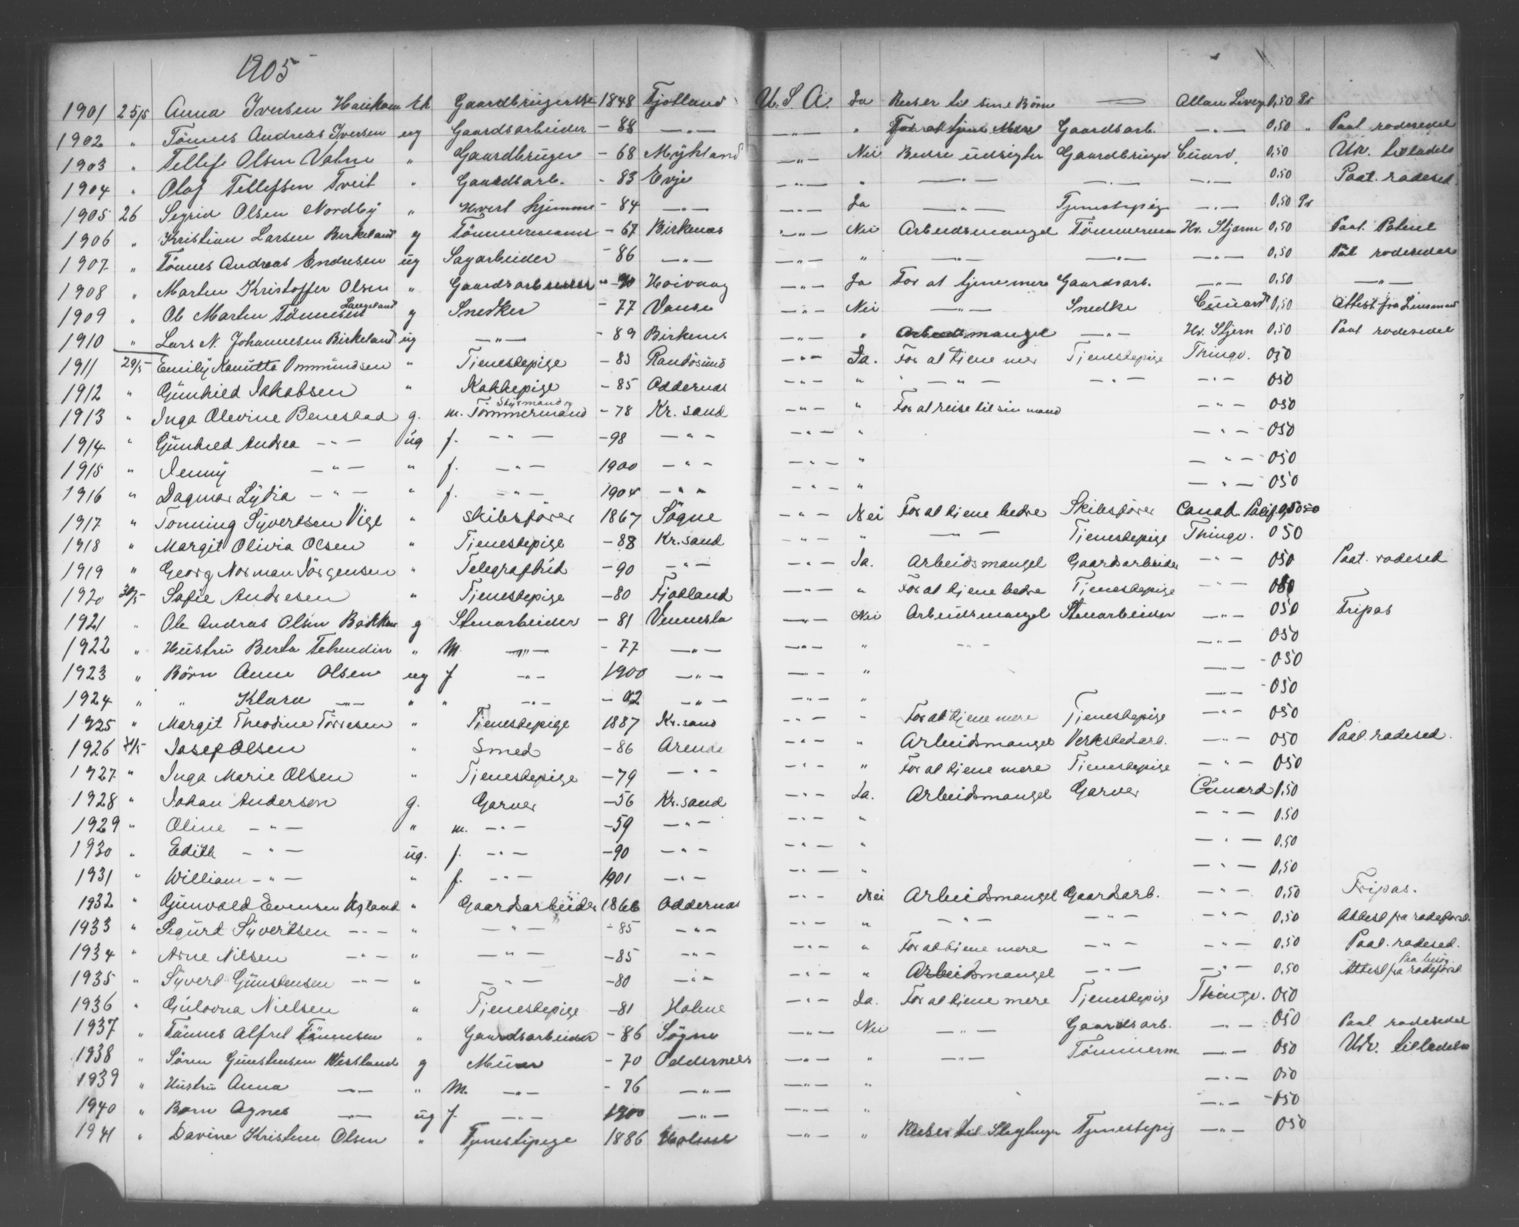 1905
1901 25/5 Anna Iversen Gaardbrugerske 1848 Fjotland U.S.A. Ja Reiser til sine Børn — Allan 0,50
1902 " Tønnes Andreas Iversen ug Gaardsarbeider – 88 — " — " For at tjene Mere Gaardsarb. — " — 0,50 " Paat. rodesedel
1903 " Tellef Olsen Vatne " Gaardbruger – 68 Mykland — " — Nei Bedre udsigter Gaardbruger Cunard 0,50 Utv. tilladelse
1904 " Olaf Tellefsen Tveit " Gaardsarb. – 83 Evje — " — " — " — — " — — " — 0,50 Paat. rodesed.
1905 26 Sigrid Olsen Nordby " Hvert hjemme – 84 — " — — " — Ja — " — Tjenestepig — " — 0,50
1906 " Kristian Larsen Birkeland g Tømmermand – 67 Birkenes — " — Nei Arbeidsmangel Tømmerman Hv. Stjern 0,50 Paat.
1907 " Tønnes Andreas Endresen ug Sagarbeider – 86 — " — — " — " — " — — " — — " — 0,50 Pat rodesedel
1908 " Martin Kristoffer Olsen " Gaardsarbeider – 90 Høivaag — " — Ja For at tjene mere Gaardsarb. — " — 0,50 — " —
1909 " Ole Martin Tønnesen Langeland g Snedker – 77 Vanse — " — Nei — " — Snedke Cunard 0,50 Attest fra Linsmand
1910 " Lars N. Johannesen Birkeland ug — " — – 89 Birkenes " Arbeidsmangel — " — Hv. Stjern 0,50 Paat rodesedel
1911 29/5 Emily Kanutta Ommundsen " Tjenestepige – 83 Randøsund — " — Ja. For at tjene mer Tjenestepige Thingv. 050
1912 " Gunhild Jakobsen " Kokkepige – 85 Oddernes — " — " " — " — — " — — " — 050
1913 " Inga Olevine Benestad g. m. Styrmand Tømmermand – 78 Kr. sand — " — " For at reise til sin mand — " — 050
1914 " Gunhild Andrea — " — ug f. — " — – 98 — " — — " — " — " — 050
1915 " Jenny — " — " f. — " — 1900 — " — — " — " — " — 050
1916 " Dagmar Lydia — " — " f. — " — 1904 — " — — " — " — " — 050
1917 " Tønning Syvertsen Vige " skibsfører 1867 Søgne — " — Nei For at tjene bedre Skibsfører Canad. Pacif
1918 " Margit Olivia Olsen " Tjenestepige – 88 Kr. sand — " — " — " — Tjenestepige Thingv. 050
1919 " Georg Norman Jørgensen " Telegrafbud – 90 — " — Ja. Arbeidsmangel Gaardarbeider — " — 050 Paat. rodesed
1920 30/5 Sofie Andresen " Tjenestepige – 80 Fjotland — " — " For at tjene bedre Tjenestepige — " — 050
1921 " Ole Andreas Olsen Bakken g Stenarbeider – 81 Vennesla — " — Nei Arbeidsmangel Stenarbeider — " — 050 Fripas
1922 " Hustru Berta " M — " — – 77 — " — — " — " — " — — " — 050
1923 " Børn Anne Olsen ug f — " — 1900 — " — — " — " — " — 050
1924 " " Klara — " — " " — " — – 02 — " — — " — " — " — 050
1925 " Margit Theodine Torresen " Tjenestepige 1887 Kr. sand — " — " For at tjene mere Tjenestepige — " — 050
1926 31/5 Josef Olsen " Smed – 86 Arenda — " — " Arbeidsmangel Verkstedarb. — " — 050 Paat. rodesed.
1927 " Inga Marie Olsen " Tjenestepige – 79 — " — — " — " For at tjene mere Tjenestepige — " — 050
1928 " Johan Anderson g. Garver – 56 Kr. sand — " — Ja. Arbeidsmangel Garver Cunard 0,50
1929 " Oline — " — " m. — " — – 59 — " — — " — " — " — 0,50
1930 " Edith — " — ug. f. — " — – 90 — " — — " — " — " — 0,50
1931 " William — " — " f. — " — 1901 — " — — " — " — " — 0,50
1932 " Gunvald Evensen Høgland " Gaardsarbeider 1866 Oddernes — " — Nei Arbeidsmangel Gaardsarb. — " — 0,50 Fripas.
1933 " Sigurd Syvertsen — " — " — " — – 85 — " — — " — " — " — — " — — " — 0,50 Attest fra rodeforst.
1934 " Arne Nilsen — " — " — " — – 85 — " — — " — " For at tjene mere — " — — " — 0,50 Paat. rodesed.
1935 " Syvert Gunstensen — " — " — " — – 80 — " — — " — " Arbeidsmangel — " — — " — 0,50 Attest fra rodeforst
1936 " Gulovna Nielsen " Tjenestepige – 81 Holme — " — Ja. For at tjene mere Tjenestepige Thingv. 050
1937 " Tønnes Alfred Tønnesen " Gaardsarbeider – 86 Søgne — " — Nei — " — Gaardsarb. — " — 050 Paat rodesedel
1938 " Søren Gunstensen Vestland g Murer – 70 Oddernes — " — " — " — Tømmerm — " — 050 Utv. tilladelse
1939 " Hustru Anna — " — " M. — " — – 76 — " — — " — " — " — 050
1940 " Barn Agnes — " — ug f. — " — 1900 — " — — " — " — " — 050
1941 " Davine Kristine Olsen " Tjenestepige 1886 Holme — " — " Reiser til Slegtninge Tjenestepig — " — 050